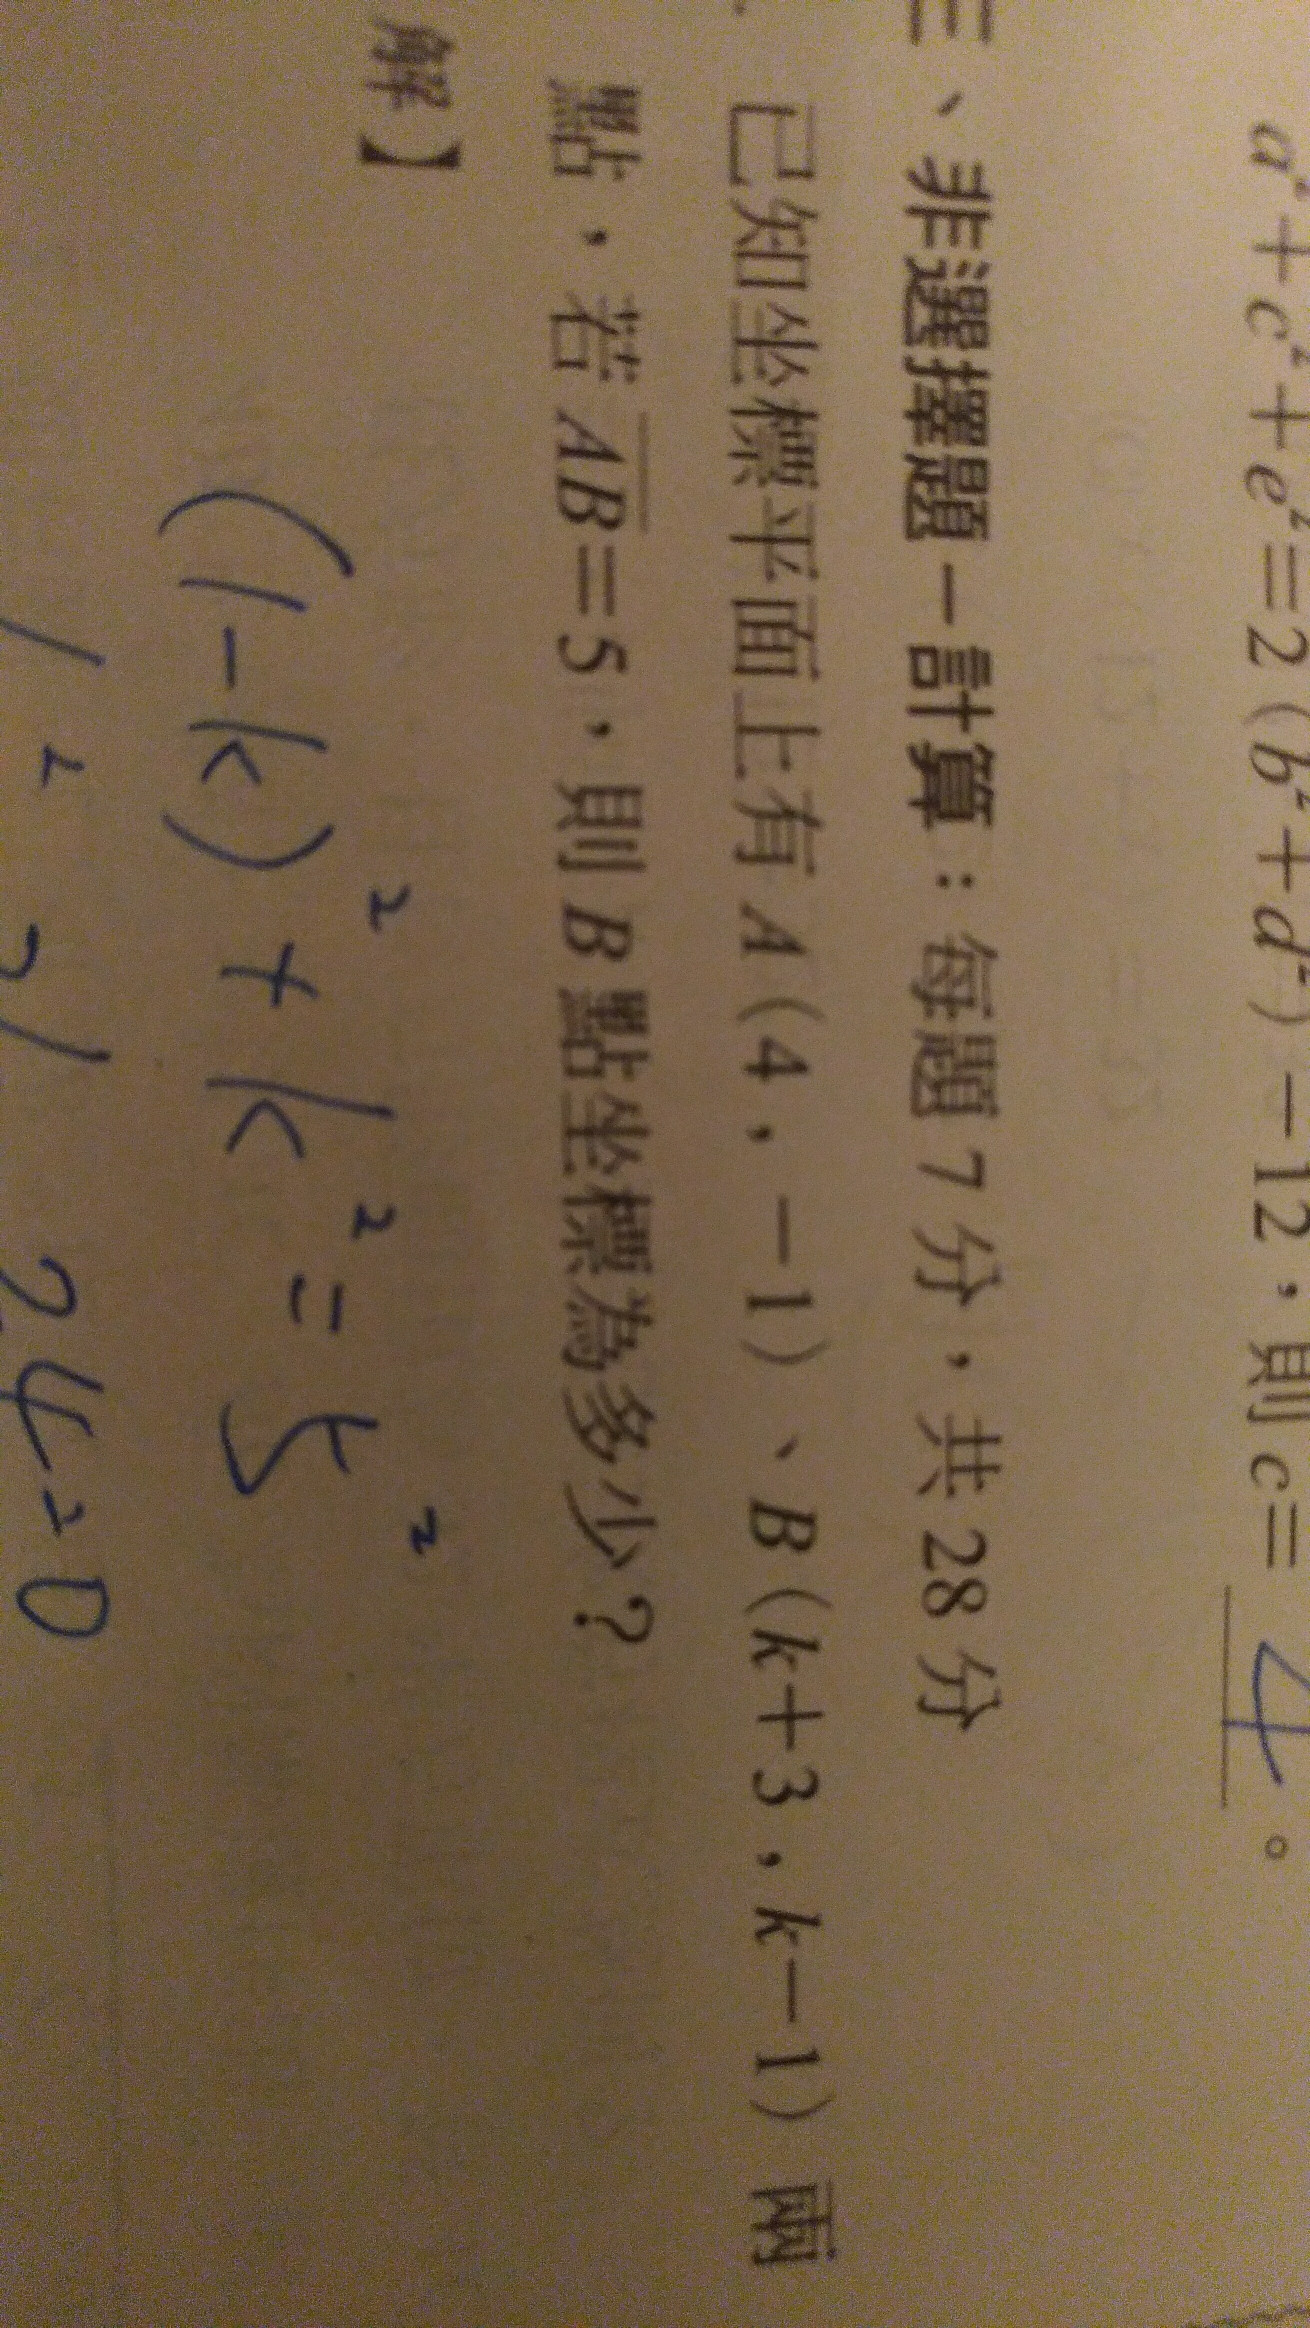 a²+c²+e²=2(b²+d²)-12，則 c= 4 。
三、非選擇題－計算：每題 7 分，共 28 分
已知坐標平面上有 A(4，-1)、B(k+3，k-1) 兩
點，若 AB=5，則 B 點坐標為多少？
解】
(1-k)²+k²=5²
24=0